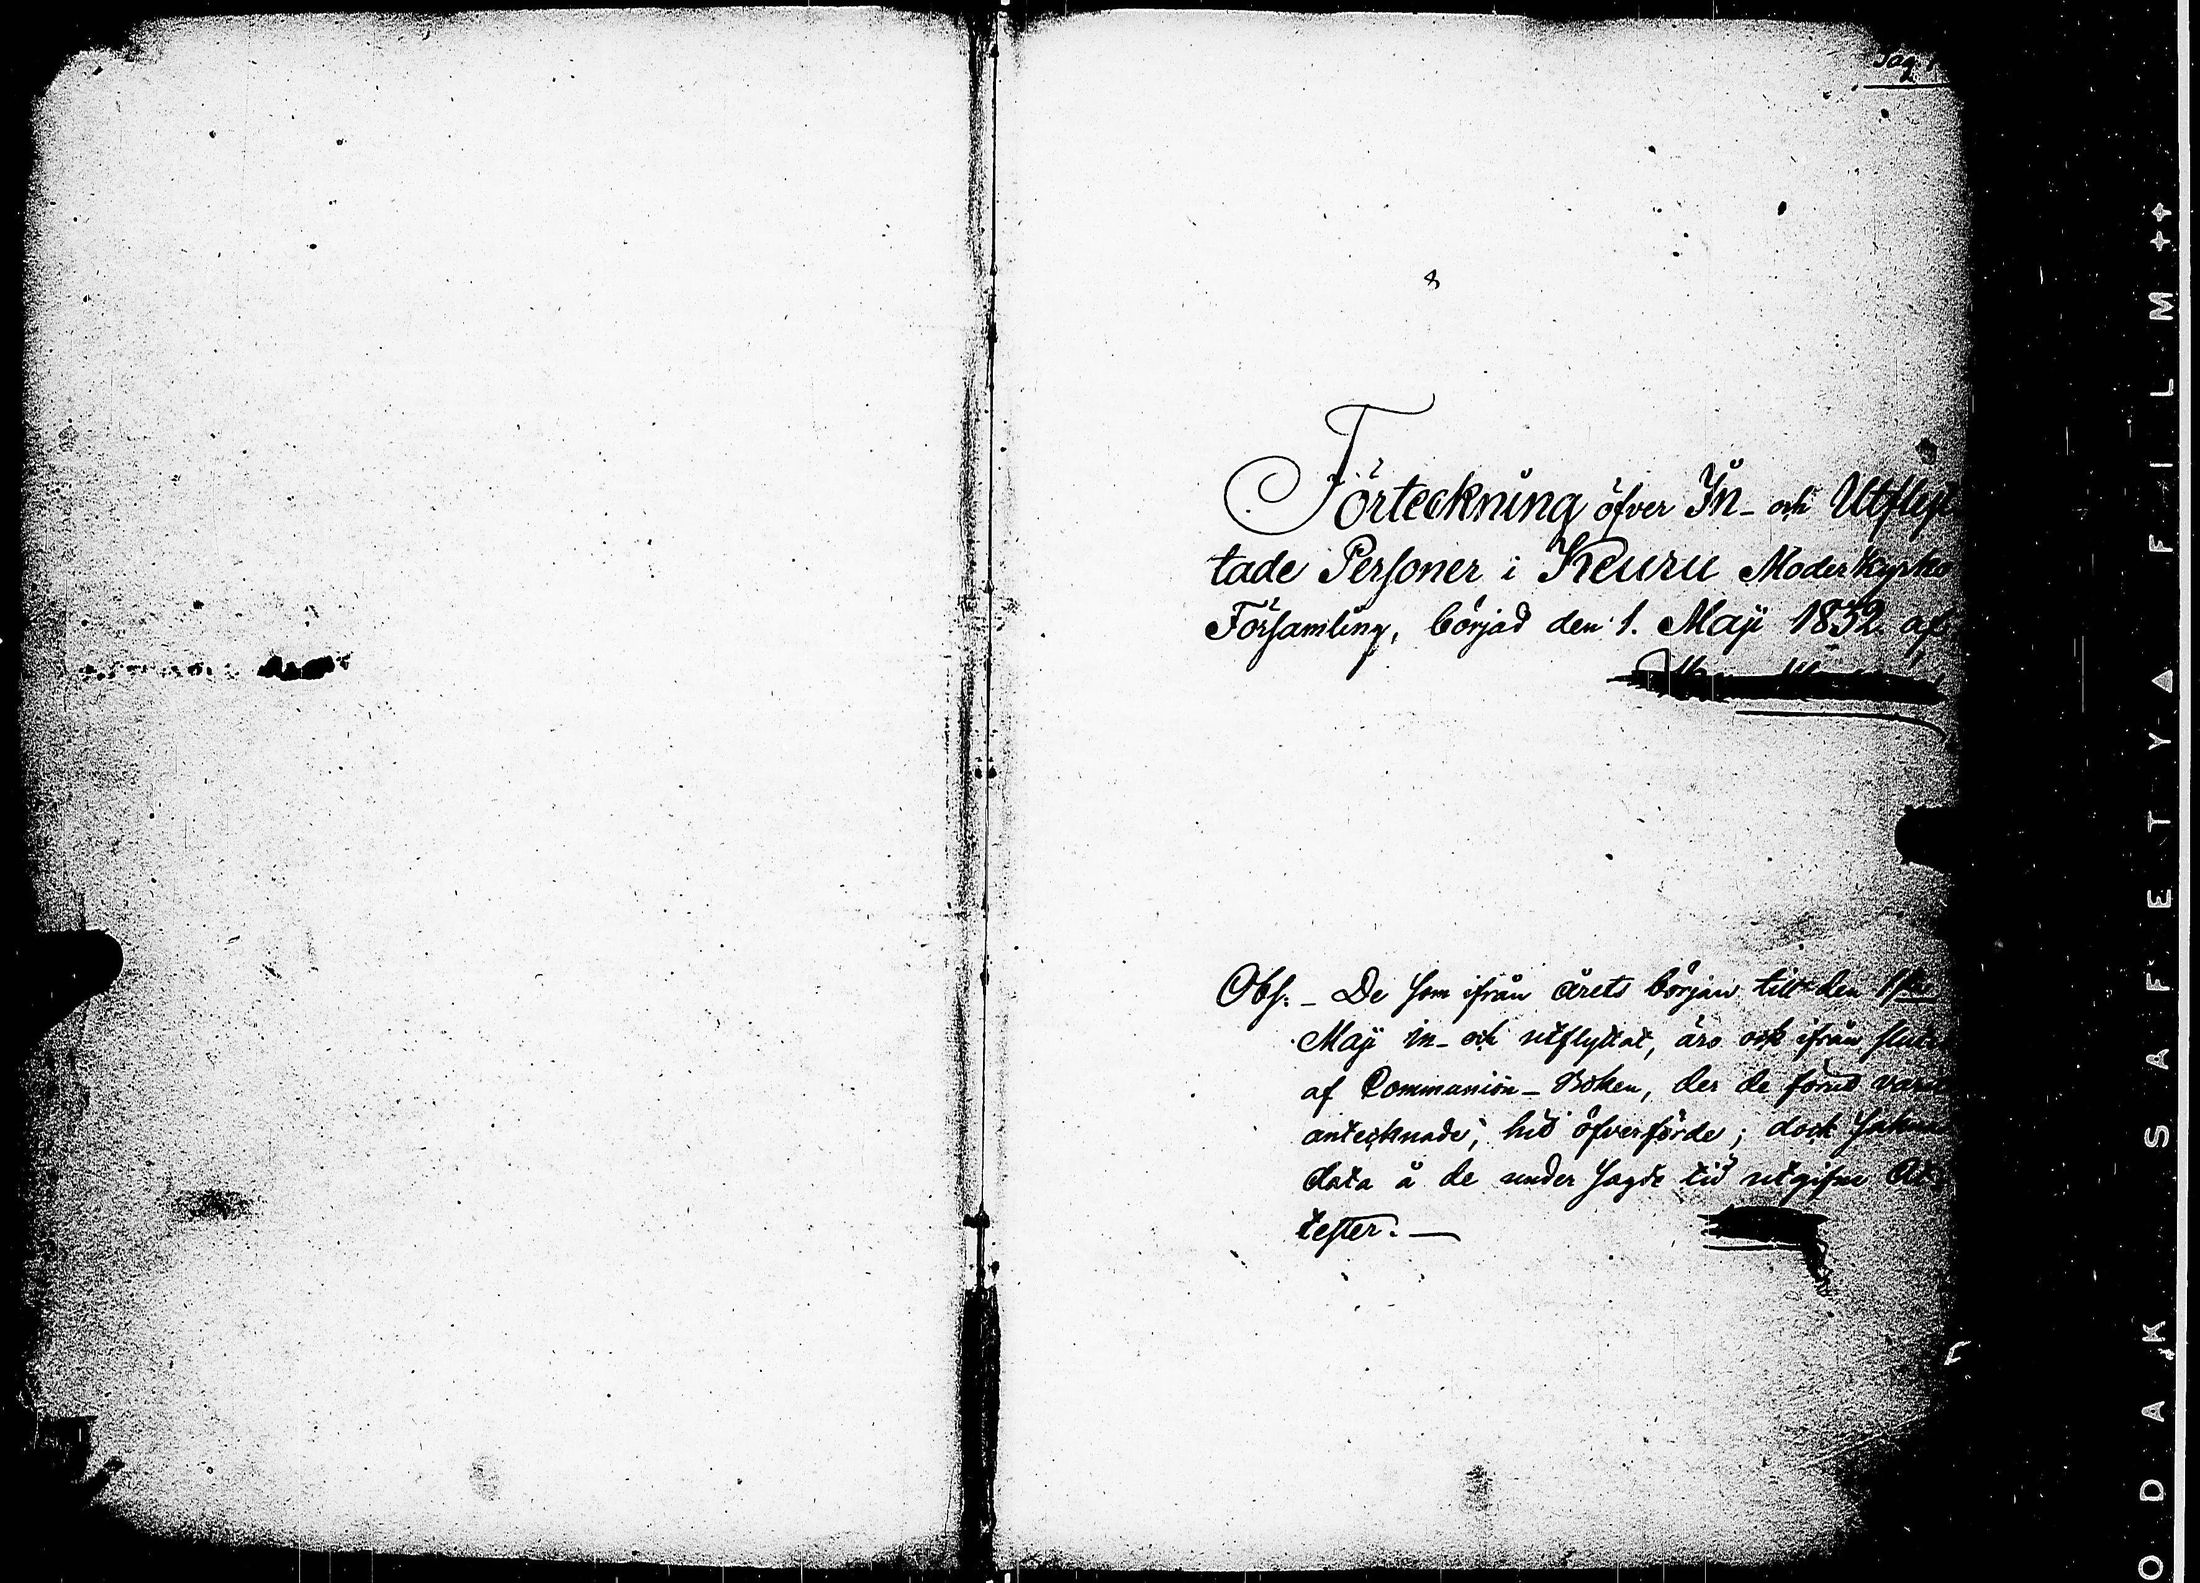 Pag. 1
8
Förteckning öfver In- och Utflyt
tade Personer i Keuru Moderkyrko
Församling, börjad den 1. Maji 1832. af
Obs. - De som ifrån årets början till den 1sta
Maji in- och utflyttat, äro ock ifrån slutet
af Communion-Boken, der de förut varit
antecknade, hid öfverförde; dock sakna
data å de under sagde tid utgifne At-
tester. —
KODAK SAFETY ▲ FILM ++